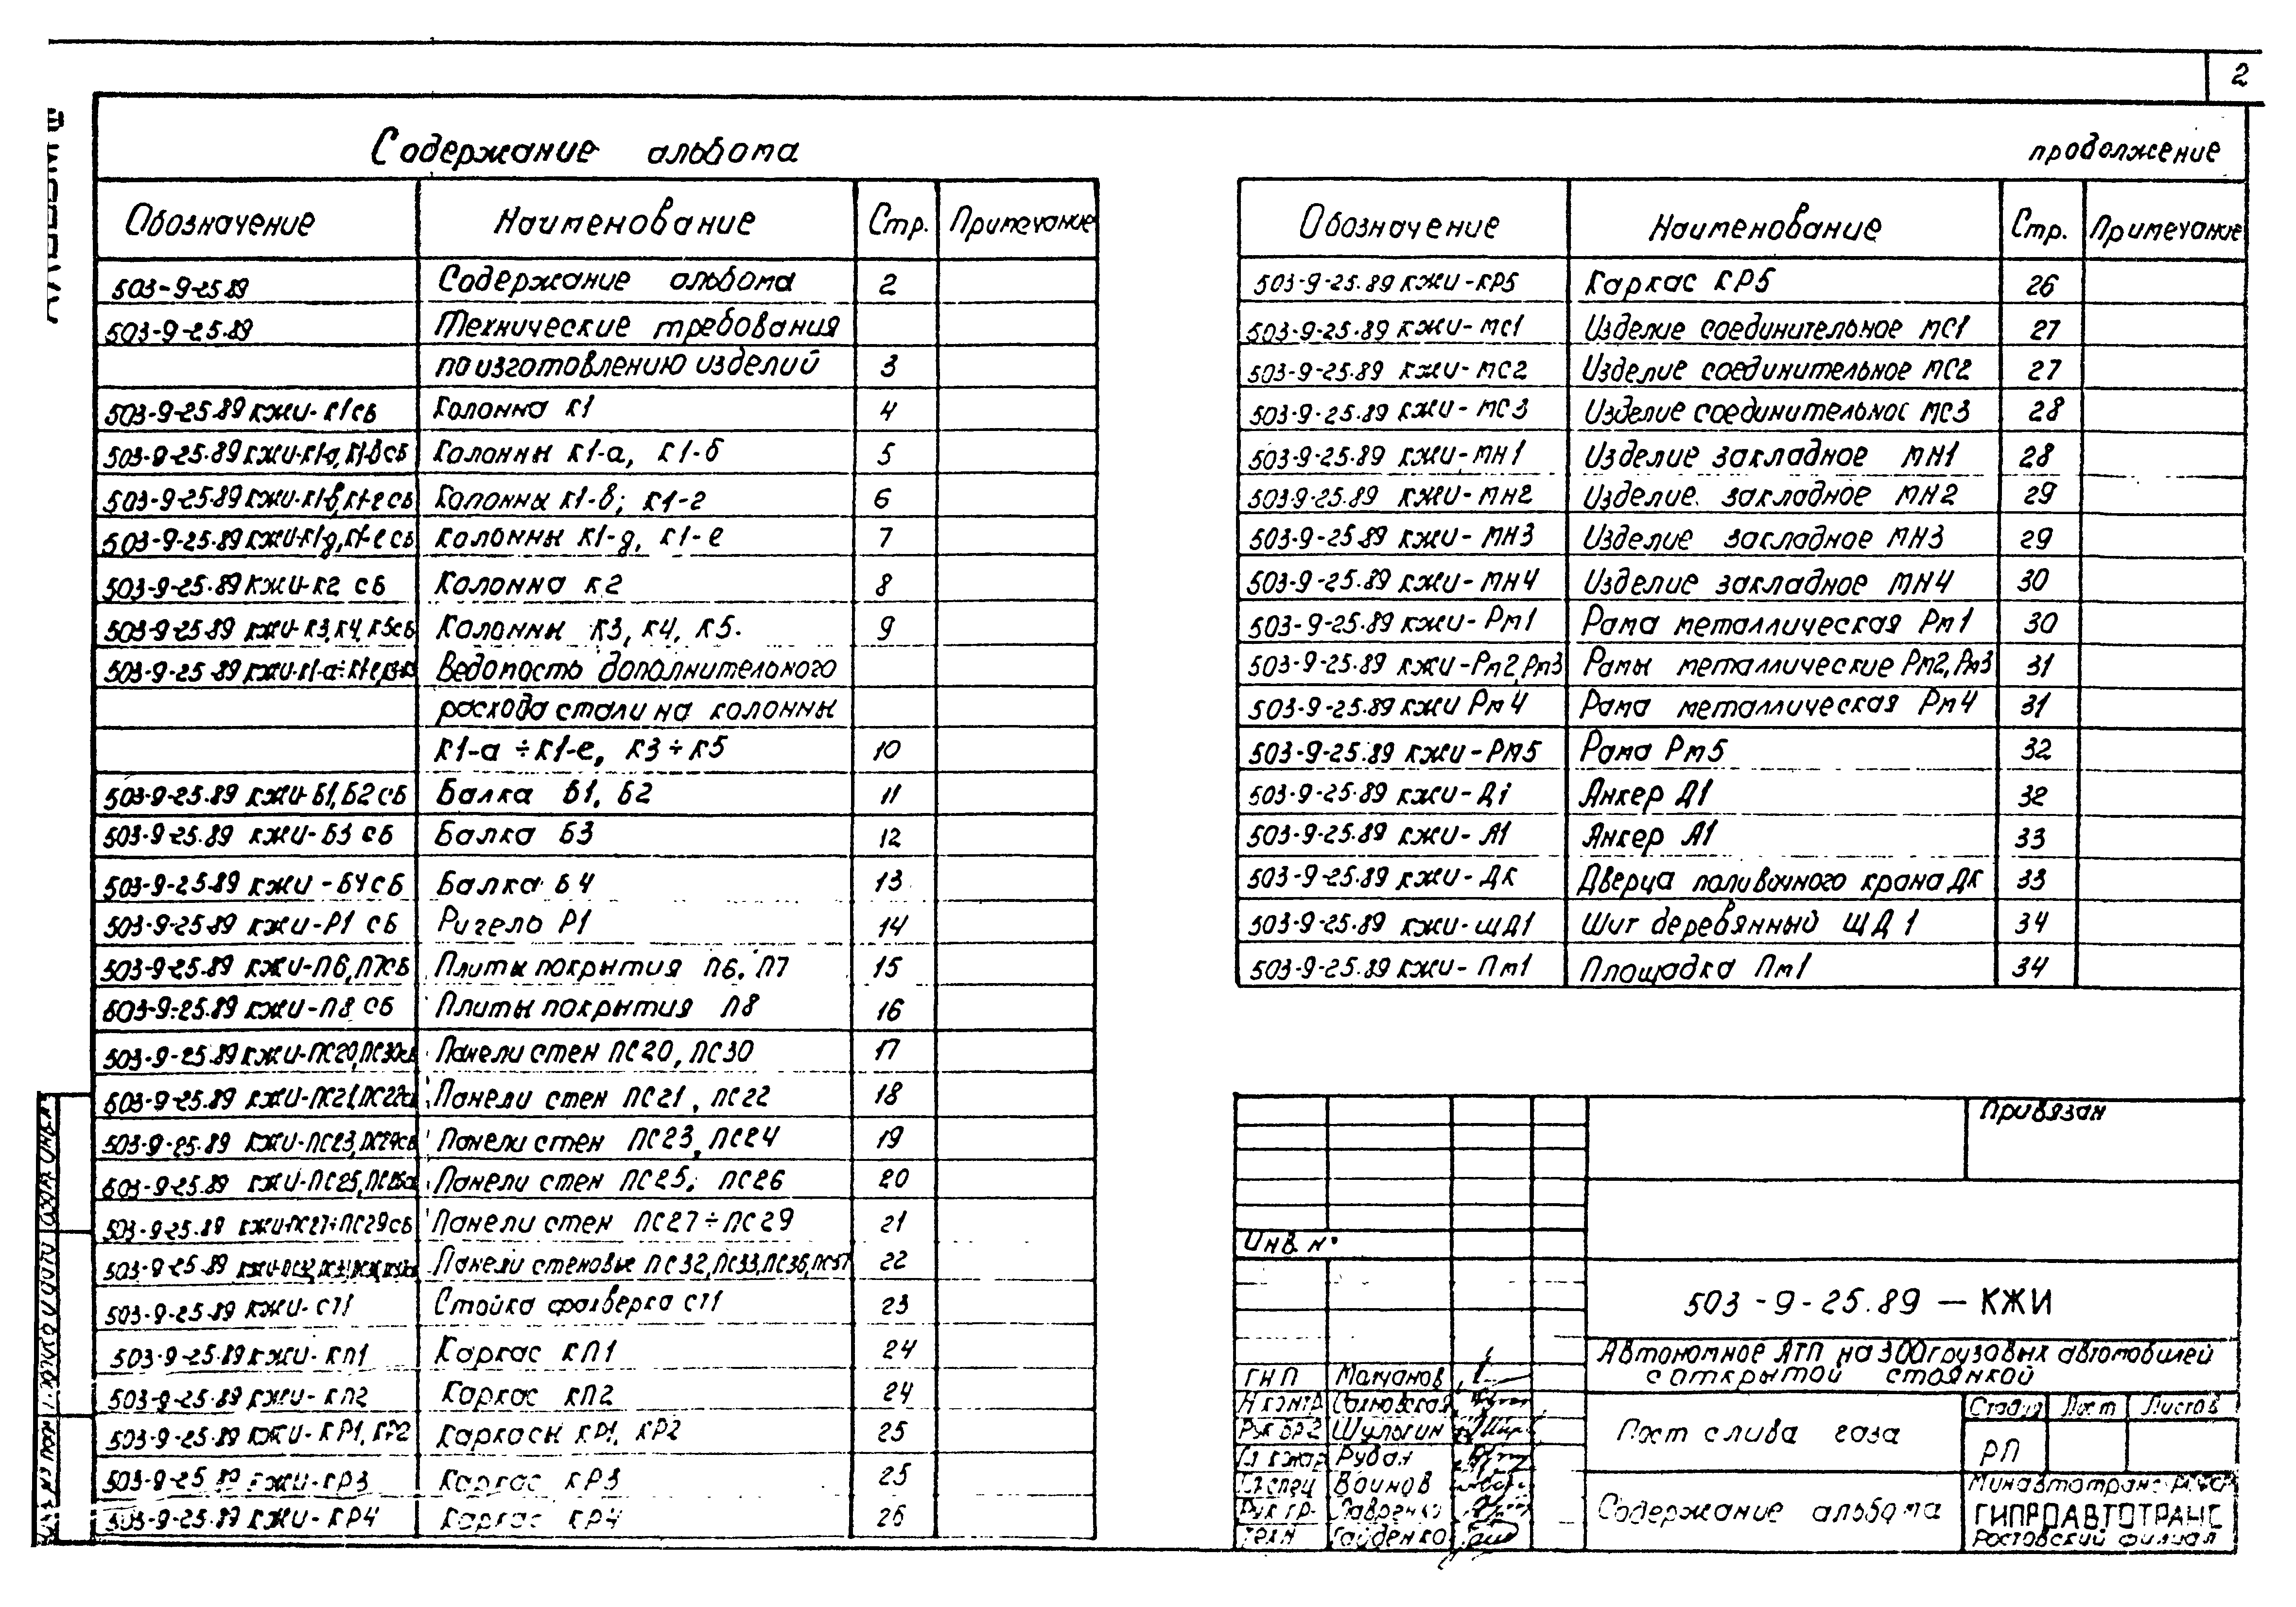 2
Содержание альбома
продолжение
Обозначение Наименование Стр. Примечание
503-9-25.89 Содержание альбома 2
503-9-25.89 Технические требования
по изготовлению изделий 3
503-9-25.89 КЖИ-К1СБ Колонна К1 4
503-9-25.89 КЖИ-К1-а, К1-б СБ Колонны К1-а, К1-б 5
503-9-25.89 КЖИ-К1-в, К1-г СБ Колонны К1-в; К1-г 6
503-9-25.89 КЖИ-К1-д, К1-е СБ Колонны К1-д, К1-е 7
503-9-25.89 КЖИ-К2 СБ Колонна К2 8
503-9-25.89 КЖИ-К3, К4, К5СБ Колонны К3, К4, К5. 9
503-9-25.89 Ведомость дополнительного
расхода стали на колонны
К1-а ÷ К1-е, К3 ÷ К5 10
503-9-25.89 КЖИ-Б1, Б2 СБ Балка Б1, Б2 11
503-9-25.89 КЖИ-Б3 СБ Балка Б3 12
503-9-25.89 КЖИ-Б4СБ Балка Б4 13
503-9-25.89 КЖИ-Р1 СБ Ригель Р1 14
503-9-25.89 КЖИ-П6, П7СБ Плиты покрытия П6, П7 15
503-9-25.89 КЖИ-П8 СБ Плиты покрытия П8 16
503-9-25.89 КЖИ-ПС20, ПС30СБ Панели стен ПС20, ПС30 17
503-9-25.89 КЖИ-ПС21, ПС22СБ Панели стен ПС21, ПС22 18
503-9-25.89 КЖИ-ПС23, ПС24СБ Панели стен ПС23, ПС24 19
503-9-25.89 КЖИ-ПС25, ПС26СБ Панели стен ПС25, ПС26 20
503-9-25.89 КЖИ-ПС27÷ПС29СБ Панели стен ПС27÷ПС29 21
503-9-25.89 Панели стеновые ПС32, ПС33, ПС36, ПС37 22
503-9-25.89 КЖИ-СТ1 Стойка фахверка СТ1 23
503-9-25.89 КЖИ-КП1 Каркас КП1 24
503-9-25.89 КЖИ-КП2 Каркас КП2 24
503-9-25.89 КЖИ-КР1, КР2 Каркасы КР1, КР2 25
503-9-25.89 КЖИ-КР3 Каркас КР3 25
503-9-25.89 КЖИ-КР4 Каркас КР4 26
Обозначение Наименование Стр. Примечание
503-9-25.89 КЖИ-КР5 Каркас КР5 26
503-9-25.89 КЖИ-МС1 Изделие соединительное МС1 27
503-9-25.89 КЖИ-МС2 Изделие соединительное МС2 27
503-9-25.89 КЖИ-МС3 Изделие соединительное МС3 28
503-9-25.89 КЖИ-МН1 Изделие закладное МН1 28
503-9-25.89 КЖИ-МН2 Изделие закладное МН2 29
503-9-25.89 КЖИ-МН3 Изделие закладное МН3 29
503-9-25.89 КЖИ-МН4 Изделие закладное МН4 30
503-9-25.89 КЖИ-Рм1 Рама металлическая Рм1 30
503-9-25.89 КЖИ-Рм2, Рм3 Рамы металлические Рм2, Рм3 31
503-9-25.89 КЖИ Рм4 Рама металлическая Рм4 31
503-9-25.89 КЖИ-РМ5 Рама Рм5 32
503-9-25.89 КЖИ-Д1 Анкер Д1 32
503-9-25.89 КЖИ-А1 Анкер А1 33
503-9-25.89 КЖИ-ДК Дверца поливочного крана ДК 33
503-9-25.89 КЖИ-ЩД1 Щит деревянный ЩД1 34
503-9-25.89 КЖИ-Пм1 Площадка Пм1 34
Привязан
Инв. №
503-9-25.89 — КЖИ
Автономное АТП на 300 грузовых автомобилей
с открытой стоянкой
ГИП Молчанов
Н контр Сахновская
Рук бр 2 Шульгин
Рудан
Гл спец Воинов
Рук гр.
Техн Гайденко
Пост слива газа
Стадия Лист Листов
РП
Содержание альбома
Минавтотранс РСФСР
ГИПРОАВТОТРАНС
Ростовский филиал